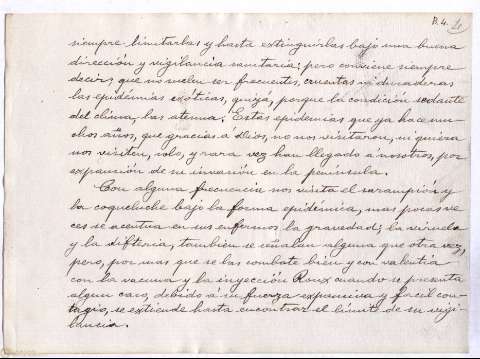 B. 4.
siempre limitarlas y hasta extinguirlas bajo una buena
dirección y vigilancia sanitaria; pero conviene siempre
decir, que no suelen ser frecuentes, cruentas ni duraderas
las epidémias exóticas, quizá, porque la condición sedante
del clima, las atenua. Estas epidemias que ya hace mu-
chos años, que gracias á Dios, no nos visitaron, ni quiera
nos visiten, solo, y rara vez han llegado a nosotros, por
expansión de su invasión en la península.
Con alguna frecuencia nos visita el sarampión y
la coqueluche bajo la forma epidémica, mas pocas ve-
ces se acentua en sus enfermos, la gravedad; la viruela
y la difteria, tambien se señalan alguna que otra vez,
pero, por mas que se las combate bien y con valentia
con la vacuna y la inyección Roux cuando se presenta
algun caso, debido á su fuerza expansiva y facil con-
tagio, se extiende hasta encontrar el limite de su vigi-
lancia.